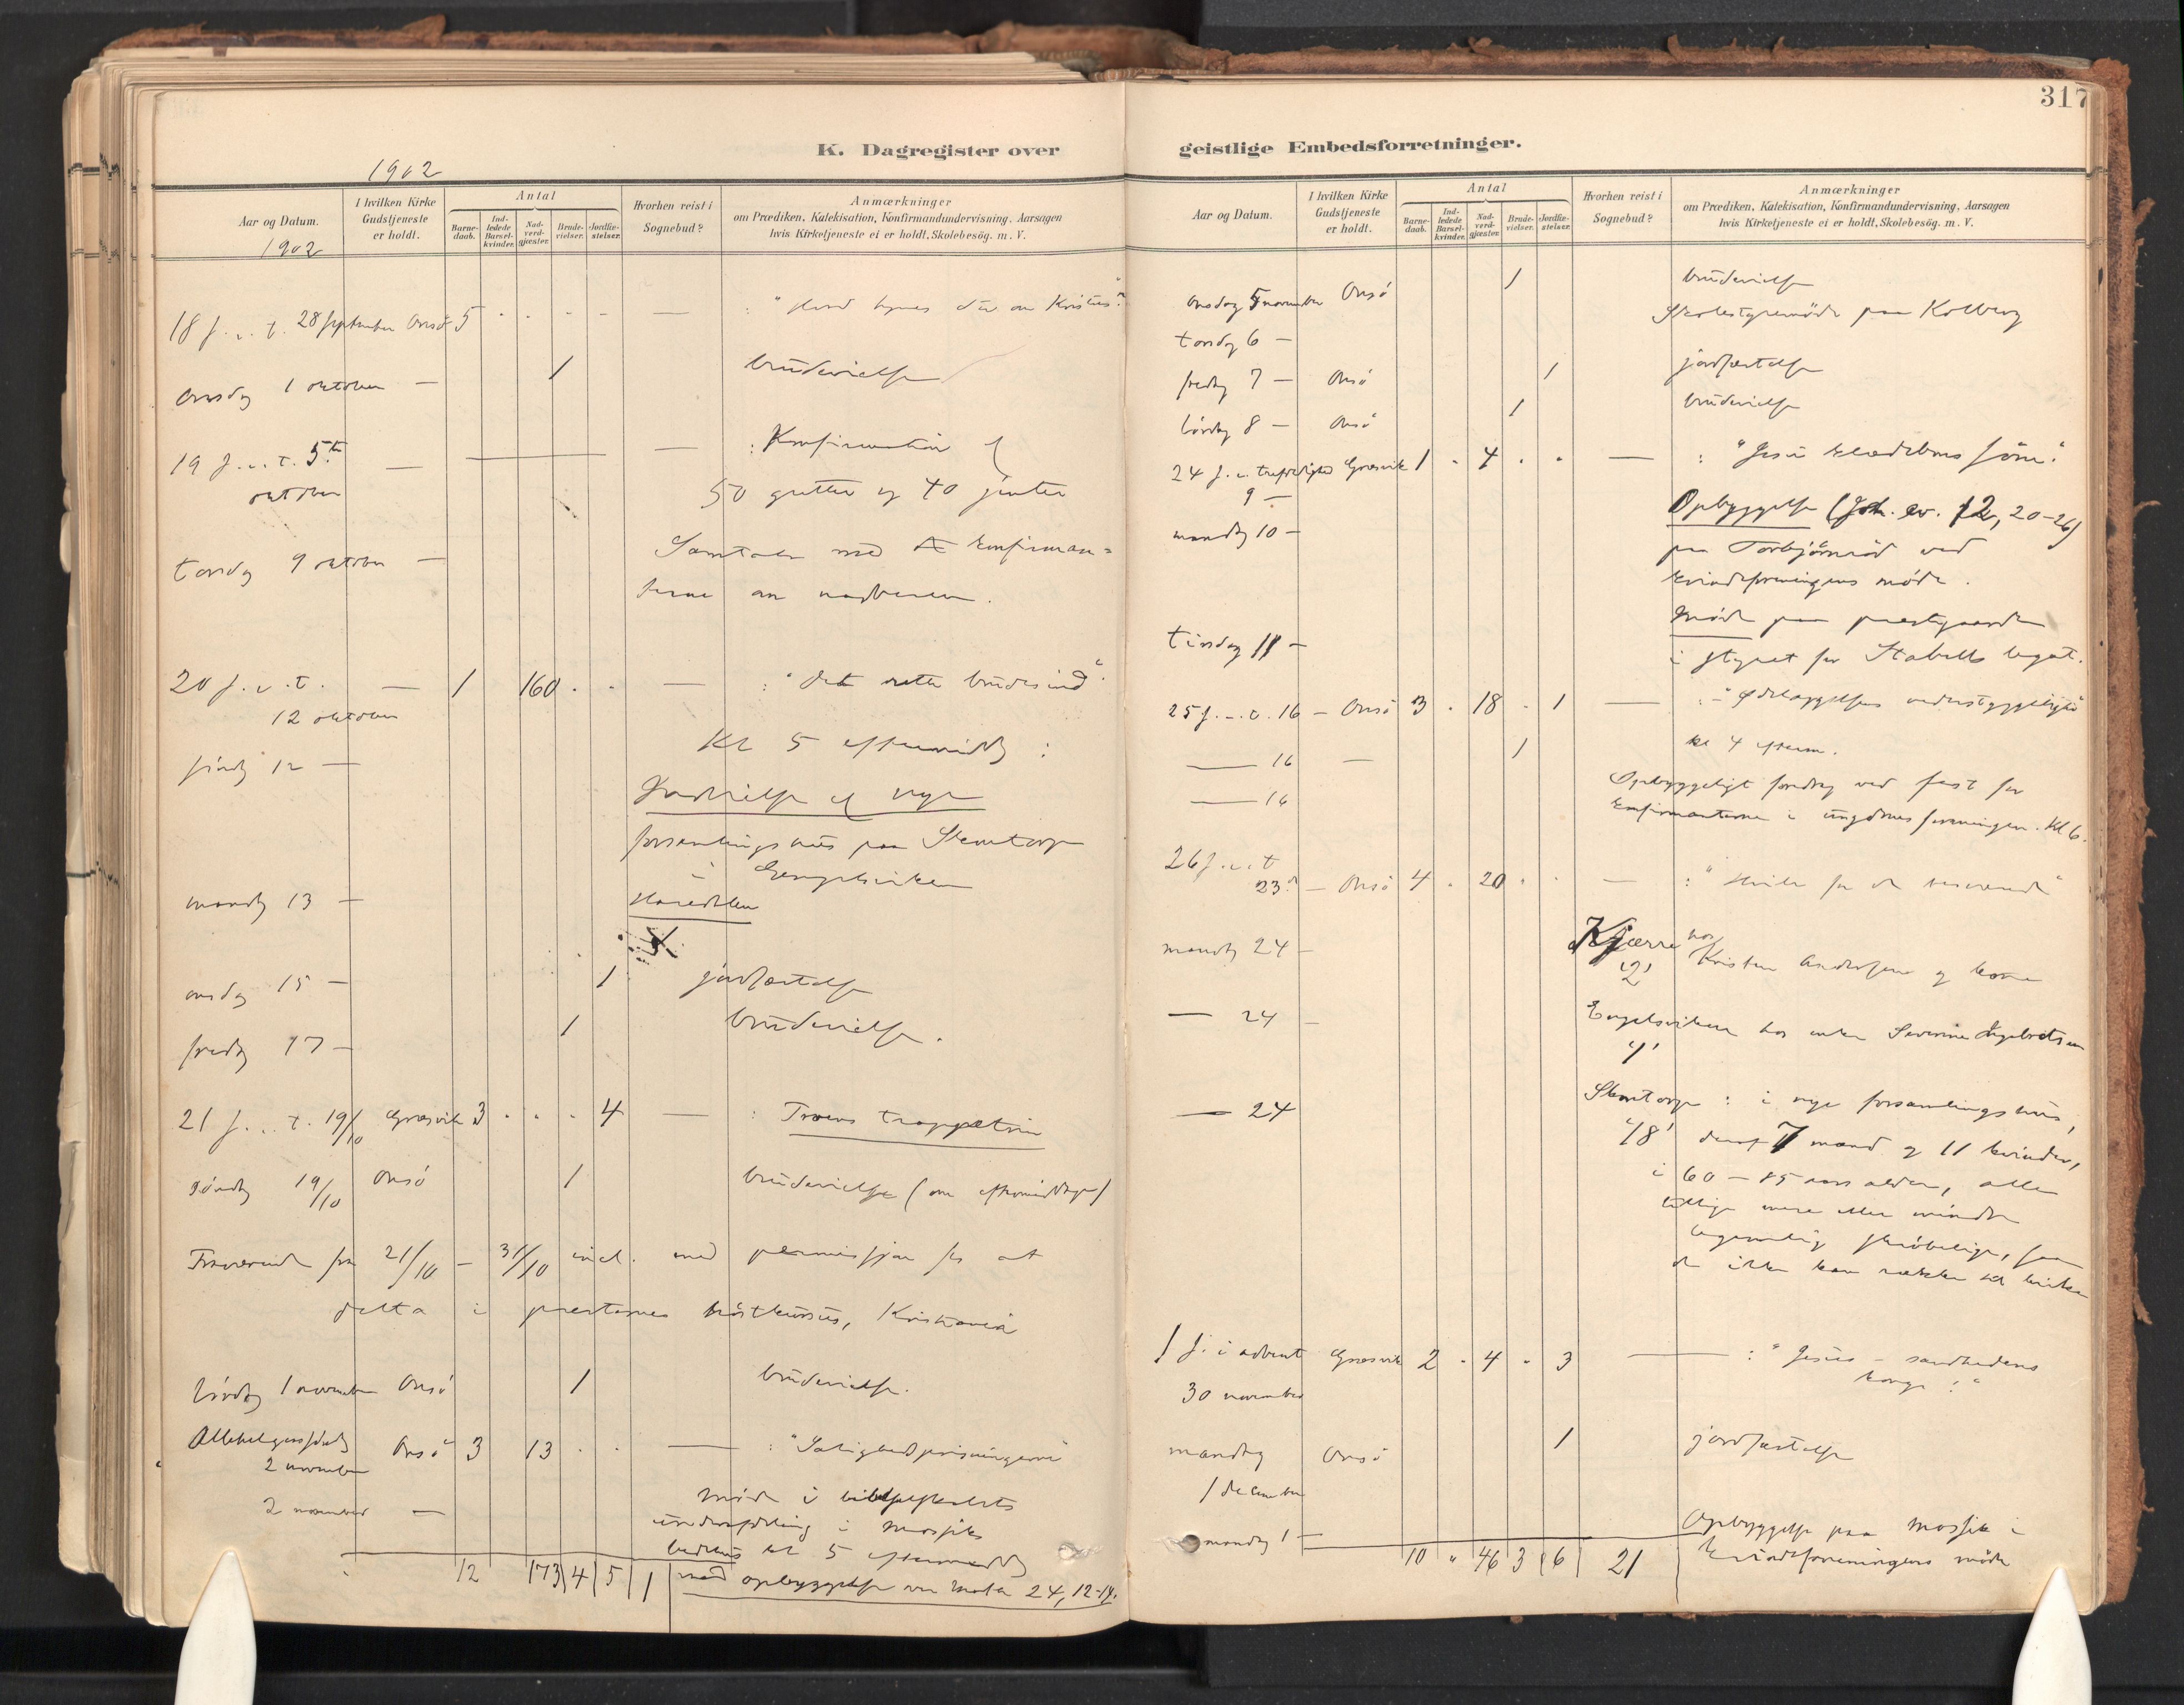 317
K. Dagregister over
geistlige Embedsforretninger.
1902
Aar og Datum.
1902
I hvilken Kirke Gudstjeneste er holdt.
Antal
Barne-daab.
Ind-ledede Barsel-kvinder.
Nad-verd-gjæster.
Brude-vielser.
Jordfæ-stelser.
Hvorhen reist i Sognebud?
Anmærkninger
om Prædiken, Katekisation, Konfirmandundervisning, Aarsagen
hvis Kirketjeneste ei er holdt, Skolebesög. m. V.
18 s. e. t. 28 september Onsö 5 . . . . — : "Hvad synes eder om Kristus?"
Onsdag 1 oktober — 1 brudevielse
19 s. e. t. 5te — — : Konfirmation af
oktober
50 gutter og 40 jenter
torsdag 9 oktober — Samtale med konfirman=
terne om nadveren.
20 s. e. t. — 1 160 . . — : "det rette brudesind"
12 oktober
söndag 12 — Kl 5 eftermiddag :
Indvielse af nye
forsamlingshus paa Stentorp
i Engelsviken
mandag 13 —
onsdag 15 — 1 jordfæstelse
fredag 17 — 1 brudevielse.
21 s. e. t. 19/10 Græsvik 3 . . . 4 — : Troens trappetrin
söndag 19/10 Onsö 1 brudevielse (om eftermiddagen)
Fraværende fra 21/10 — 31/10 incl. med permissjon for at
delta i presternes höstkursus, Kristiania
Lördag 1 november Onsö 1 brudevielse.
Allehelgenssöndag
2 november Onsö 3 13 . . — : "Salighedsprisningerne"
2 november — Möde i
underafdeling i Mossiks
bedehus kl 5 eftermiddag
med opbyggelse over Mat. 24, 12-14.
12 173 4 5 1
Aar og Datum.
I hvilken Kirke Gudstjeneste er holdt.
Antal
Barne-daab.
Ind-ledede Barsel-kvinder.
Nad-verd-gjæster.
Brude-vielser.
Jordfæ-stelser.
Hvorhen reist i Sognebud?
Anmærkninger
om Prædiken, Katekisation, Konfirmandundervisning, Aarsagen
hvis Kirketjeneste ei er holdt, Skolebesög. m. V.
onsdag 5 november Onsö 1 brudevielse
torsdag 6 — Skolestyremöde paa Kolberg
fredag 7 — Onsö 1 jordfæstelse
lördag 8 — Onsö 1 brudevielse
24 s. e. trefoldighed Græsvik 1 . 4 . . — : "Jesu klædebons söm."
9 —
mandag 10 — Opbyggelse (Joh. ev. 12, 20-26)
paa Torbjörnröd ved
kvindeforeningens möde.
tirsdag 11 — Möde paa prestegaarden
i styret for Stabells legat.
25 s. e. t. 16 — Onsö 3 . 18 . 1 — : "Ödelæggelsens vederstyggelighed"
— 16 — 1 kl 4 efterm.
— 16 Opbyggeligt foredrag ved fest for
konfirmanterne i ungdomsforeningen. Kl 6.
26 s. e. t
23de — Onsö 4 . 20 . . — : "Hvile for de besværede"
mandag 24 — Kjærre hos Kristen Andersen og kone
2
— 24 — Engelsviken hos enke Severine Engebretsen
1
— 24 Stentorp : i nye forsamlingshus,
18 deraf 7 mænd og 11 kvinder,
i 60 — 85 aars alder, alle
tillige mere eller mindre
legemlig skröbelige, saa
de ikke kan række til kirken
1 s. i advent Græsvik 2 . 4 . 3 — : "Jesus – sandhedens
30 november konge!"
mandag Onsö 1 jordfæstelse
1 december
mandag 1 — Opbyggelse paa Mossik i
kvindeforeningens möde
10 " 46 3 6 21